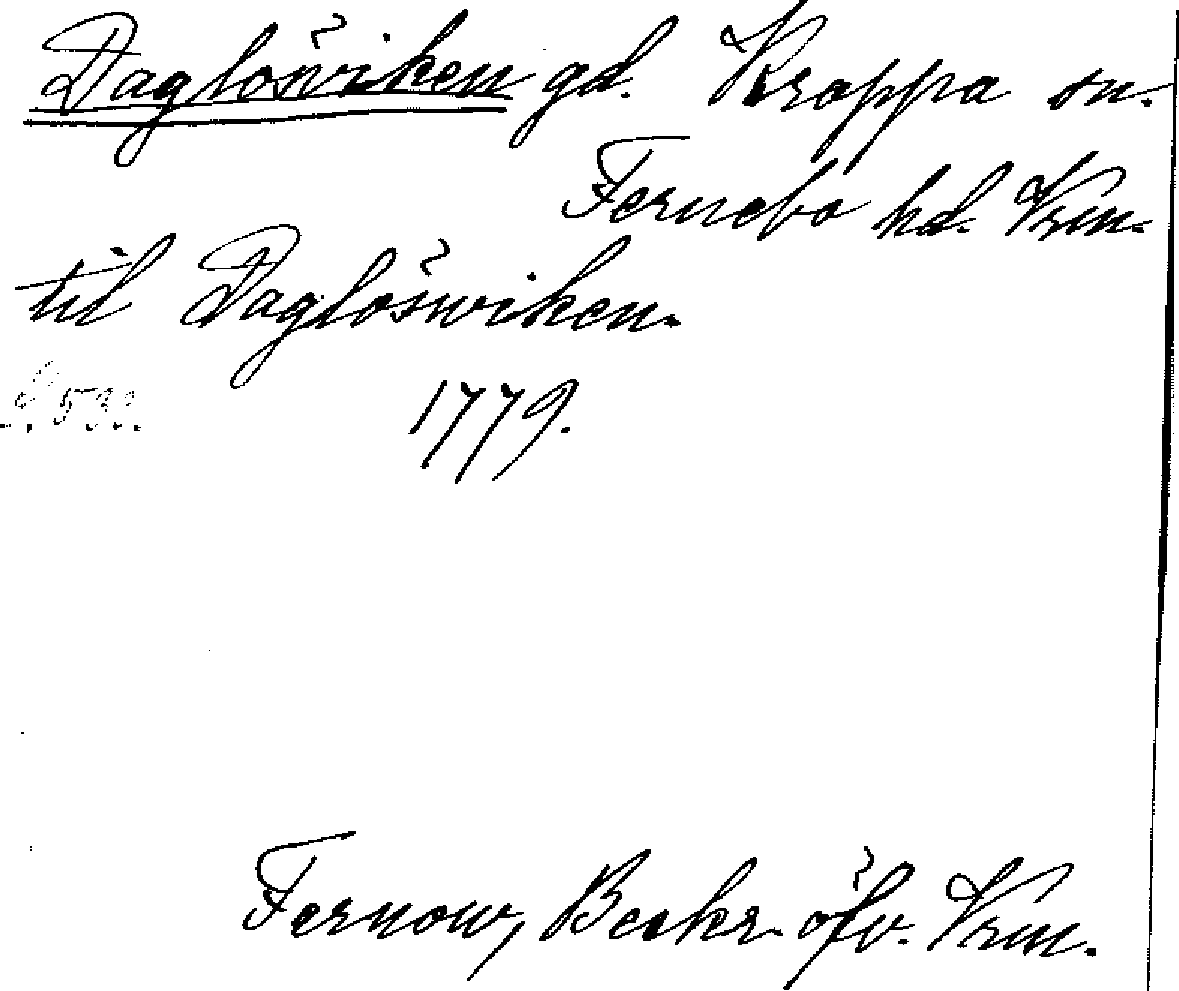 Daglösviken gd. Kroppa sn.
Fernebo hd. Vrm.
til Daglöswiken.
1779.
Fernow, Beskr. öfv. Vrm.